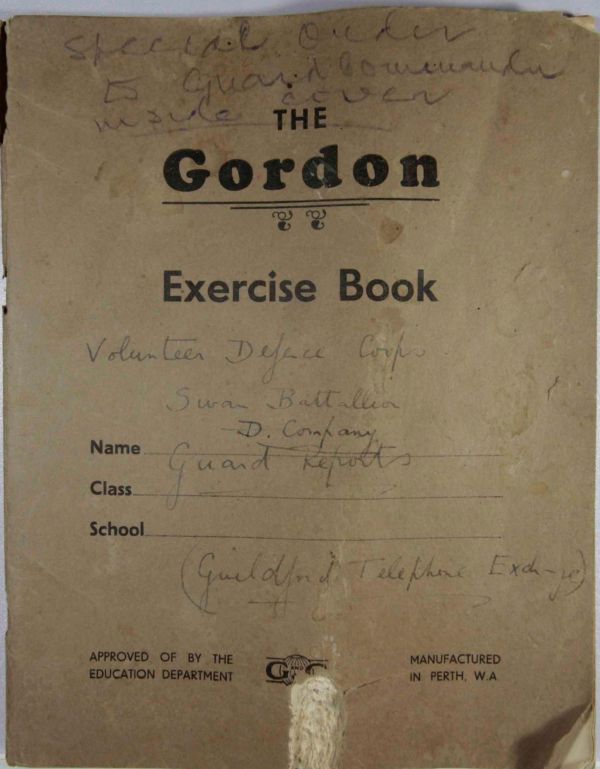 Special Order
to Guard Commander
inside cover
THE
Gordon
Exercise Book
Volunteer Defence Corps
Swan Battallion
D. Company
Name
Guard Reports
Class
School
(Guildford Telephone Exch-ge)
APPROVED OF BY THE
EDUCATION DEPARTMENT
G AND G
MANUFACTURED
IN PERTH, W.A